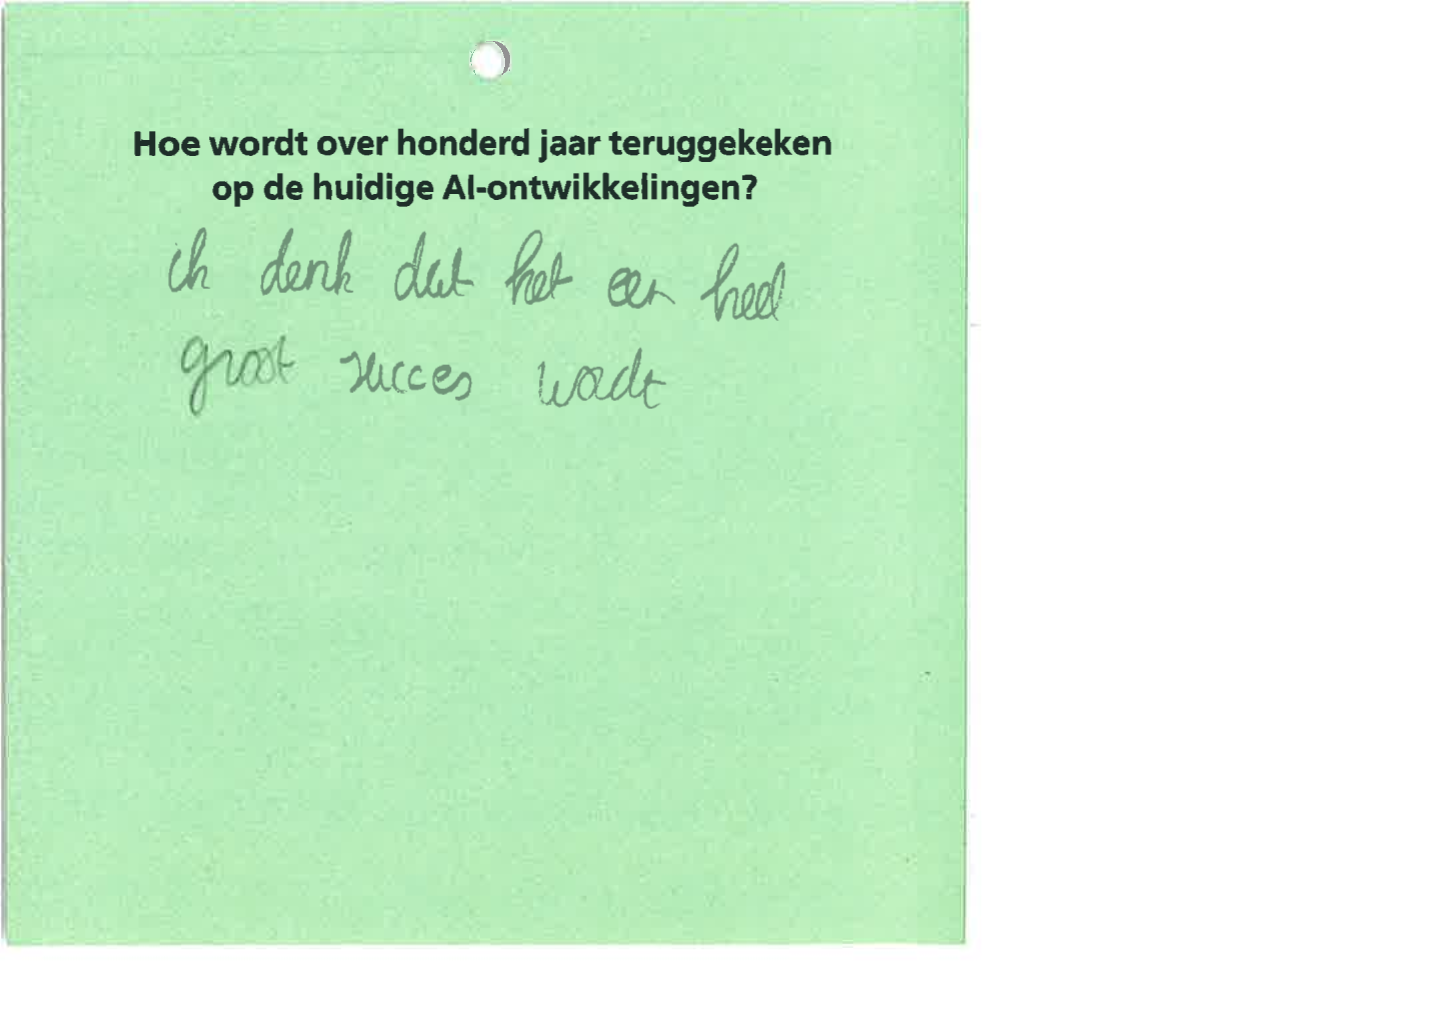 Hoe wordt over honderd jaar teruggekeken
op de huidige AI-ontwikkelingen?
ik denk dat het een heel
groot succes wordt